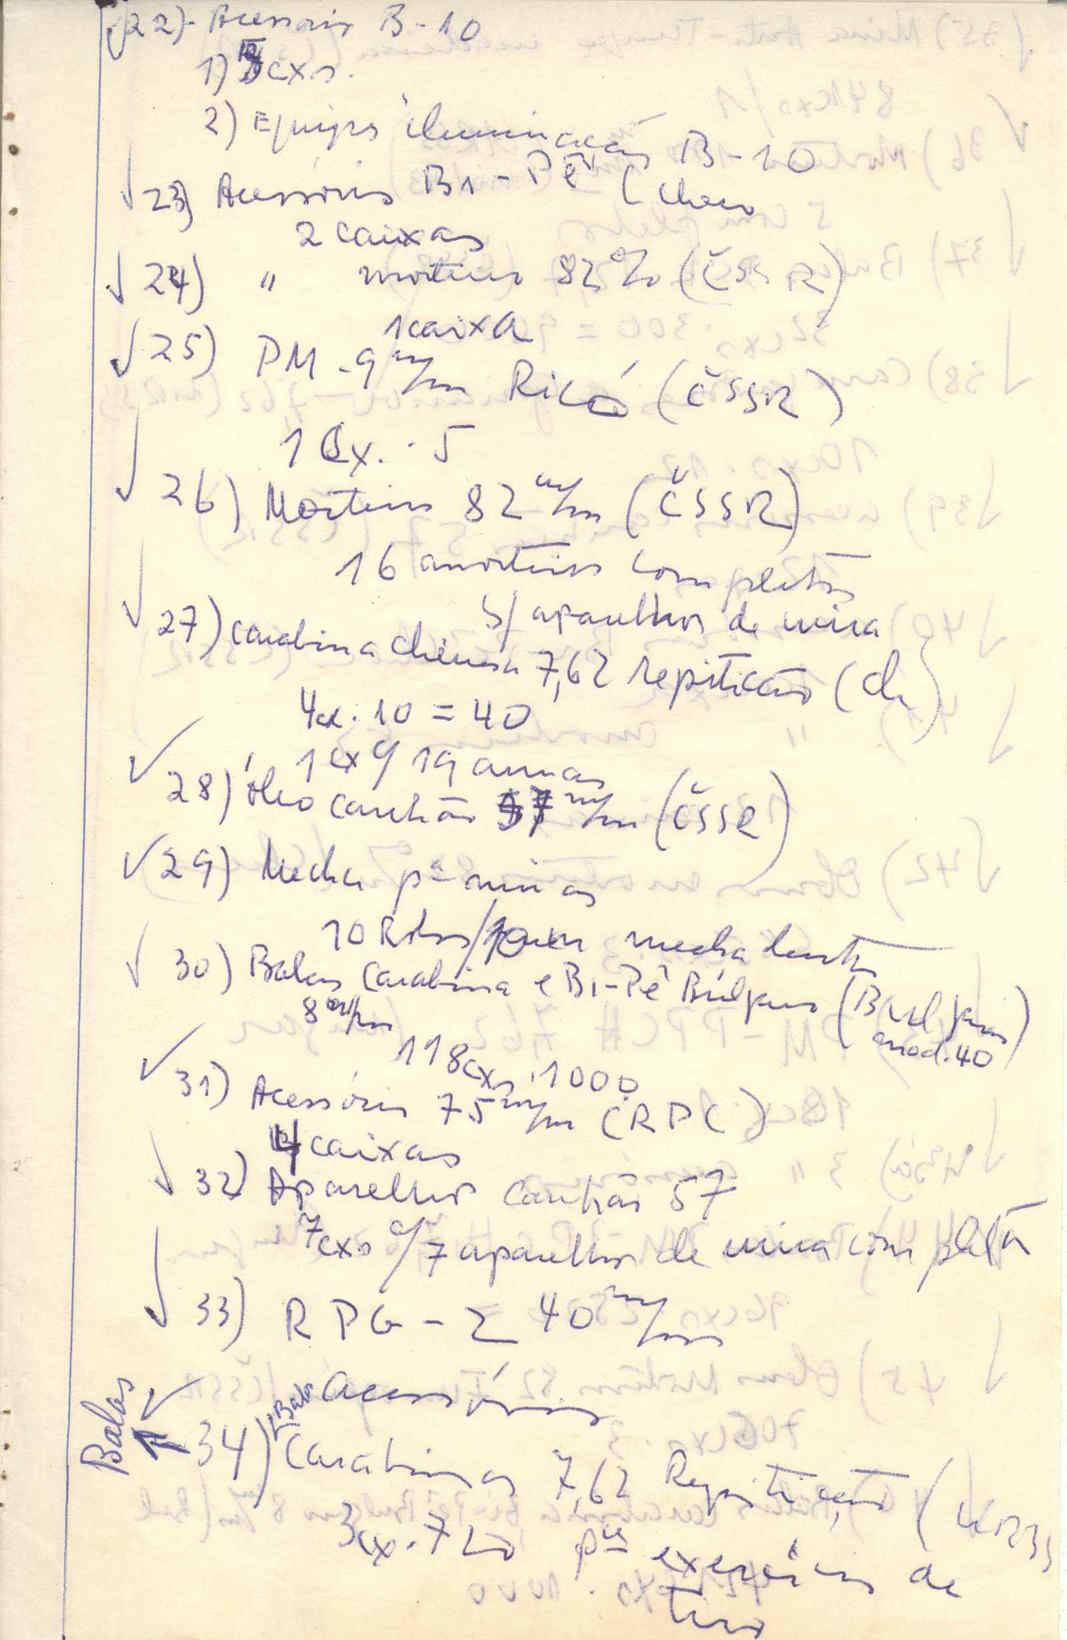 22) - Acessórios B-10
1) 3 cxs.
2) Equipos iluminação B-10
23) Acessórios B1-Pé (Checo
2 caixas
24) " morteiro 82 m/m (ČSSR)
1 caixa
25) PM-9 m/m Ricó (ČSSR)
1 Cx. · 5
26) Morteiros 82 m/m (ČSSR)
16 morteiros completos
s/ aparelhos de mira
27) carabina chinesa 7,62 repitição (Ch)
4cx. 10 = 40
1 cx c/ 19 armas
28) óleo canhão 57 m/m (ČSSR)
29) Mecha pª minas
10 Rolos mecha lenta
30) Balas Carabina e Bi-Pé Búlgaro (Bulgaro)
8 m/m mod. 40
118 cxs. 1000
31) Acessórios 75 m/m (RPC)
4 caixas
32) Aparelhos canhão 57
7cxs c/ 7 aparelhos de mira completa
33) RPG-2 40 m/m
acessórios
Balas
34) Balas Carabinas 7,62 Repitição (URSS)
3cx. 720 pª exercícios de
tiro